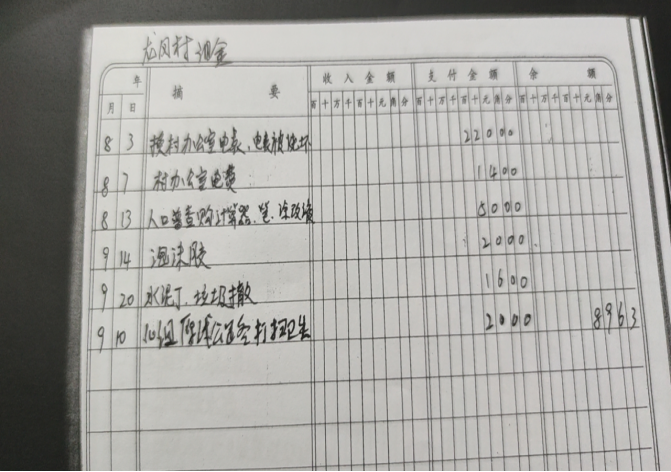 龙凤村现金
年 摘 要 收入金额 支付金额 余 额
月 日 百十万千百十元角分 百十万千百十元角分 百十万千百十元角分
8 3 换村办公室电表、电表被烧坏 22000
8 7 村办公室电费 1400
8 13 人口普查购计算器、笔、涂改液 5000
9 14 泡沫胶 2000
9 20 水泥丁、垃圾 1600
9 10 打扫卫生 2000 8963